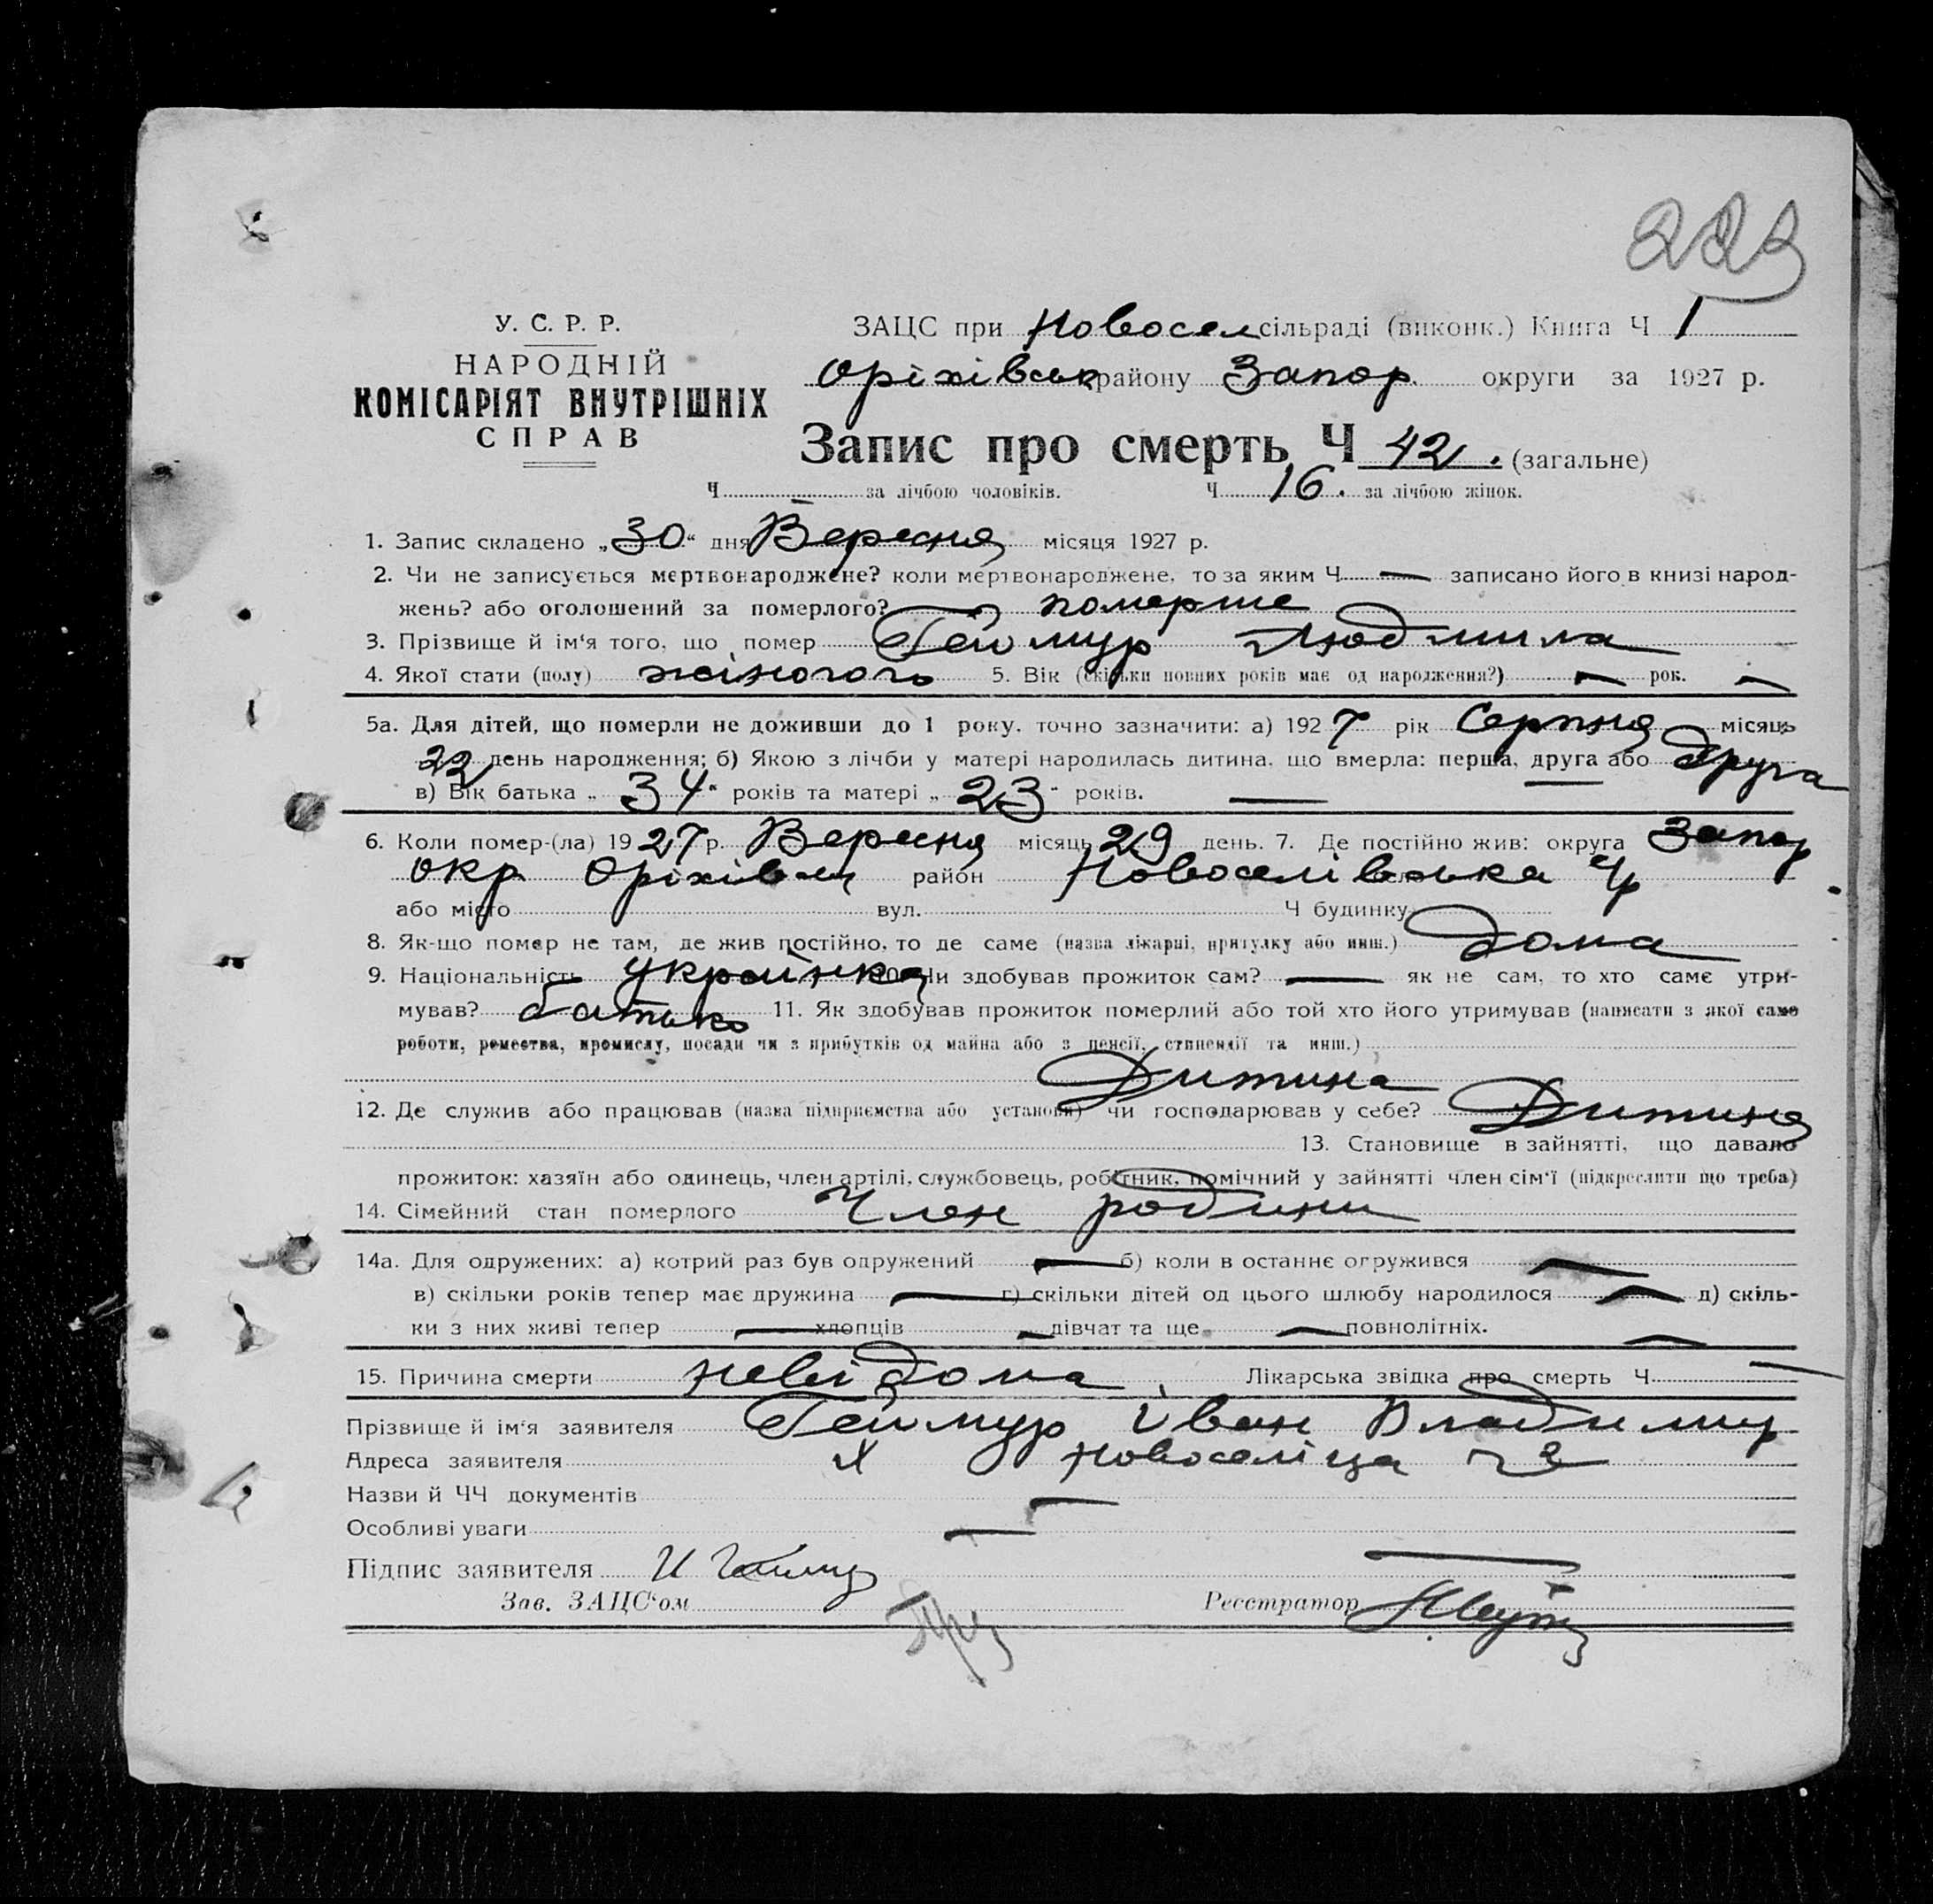 223
У. С. Р. Р.
НАРОДНІЙ
КОМІСАРІЯТ ВНУТРІШНІХ
СПРАВ
ЗАЦС при Новосел сільраді (виконк.) Книга Ч 1
Оріхівськ району Запор. округи за 1927 р.
Запис про смерть Ч 42. (загальне)
Ч за лічбою чоловіків. Ч 16. за лічбою жінок.
1. Запис складено „30“ дня Вересня місяця 1927 р.
2. Чи не записується мертвонароджене? коли мертвонароджене, то за яким Ч — записано його в книзі народ-
жень? або оголошений за померлого? померше
3. Прізвище й ім‘я того, що помер Геймур Людмила
4. Якої стати (полу) жіночого 5. Вік (скільки повних років має од народження?) — рок. —
5а. Для дітей, що померли не доживши до 1 року. точно зазначити: а) 1927 рік Серпня місяць
22 день народження; б) Якою з лічби у матері народилась дитина, що вмерла: перша, друга або друга
в) Вік батька „34“ років та матері „23“ років. —
6. Коли помер-(ла) 1927 р. Вересня місяць 29 день. 7. Де постійно жив: округа Запор
окр Оріхівськ район Новоселівська
або місто вул. Ч будинку
8. Як-що помер не там, де жив постійно, то де саме (назва лікарні, притулку або инш.) дома
9. Національність українка 10. Чи здобував прожиток сам? — як не сам, то хто саме утри-
мував? батько 11. Як здобував прожиток померлий або той хто його утримував (написати з якої саме
роботи, ремества, промислу, посади чи з прибутків од майна або з пенсії, стипендії та инш.)
Дитина
12. Де служив або працював (назва підприємства або установи) чи господарював у себе? Дитина
13. Становище в зайнятті, що давало
прожиток: хазяїн або одинець, член артілі, службовець, робітник, помічний у зайнятті член сім‘ї (підкреслити що треба)
14. Сімейний стан померлого Член родини
14а. Для одружених: а) котрий раз був одружений — б) коли в останнє огружився —
в) скільки років тепер має дружина — г) скільки дітей од цього шлюбу народилося — д) скіль-
ки з них живі тепер — хлопців — дівчат та ще — повнолітніх. —
15. Причина смерти невідома Лікарська звідка про смерть Ч —
Прізвище й ім‘я заявителя Геймур Іван Владимир
Адреса заявителя Х Новоселіца
Назви й ЧЧ документів —
Особливі уваги —
Підпис заявителя И Геймур
Зав. ЗАЦС‘ом Реєстратор